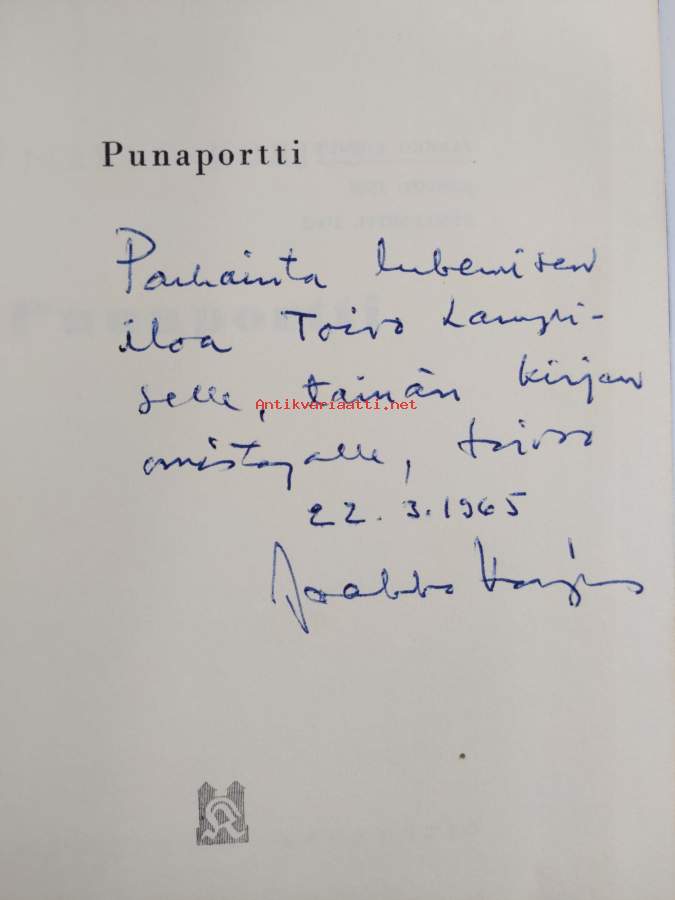 Punaportti
Parhainta lukemisen
iloa Toivo Lampi-
selle, tämän kirjan
Antikvariaatti.net
omistajalle, toivoo
22.3.1965
Jaakko